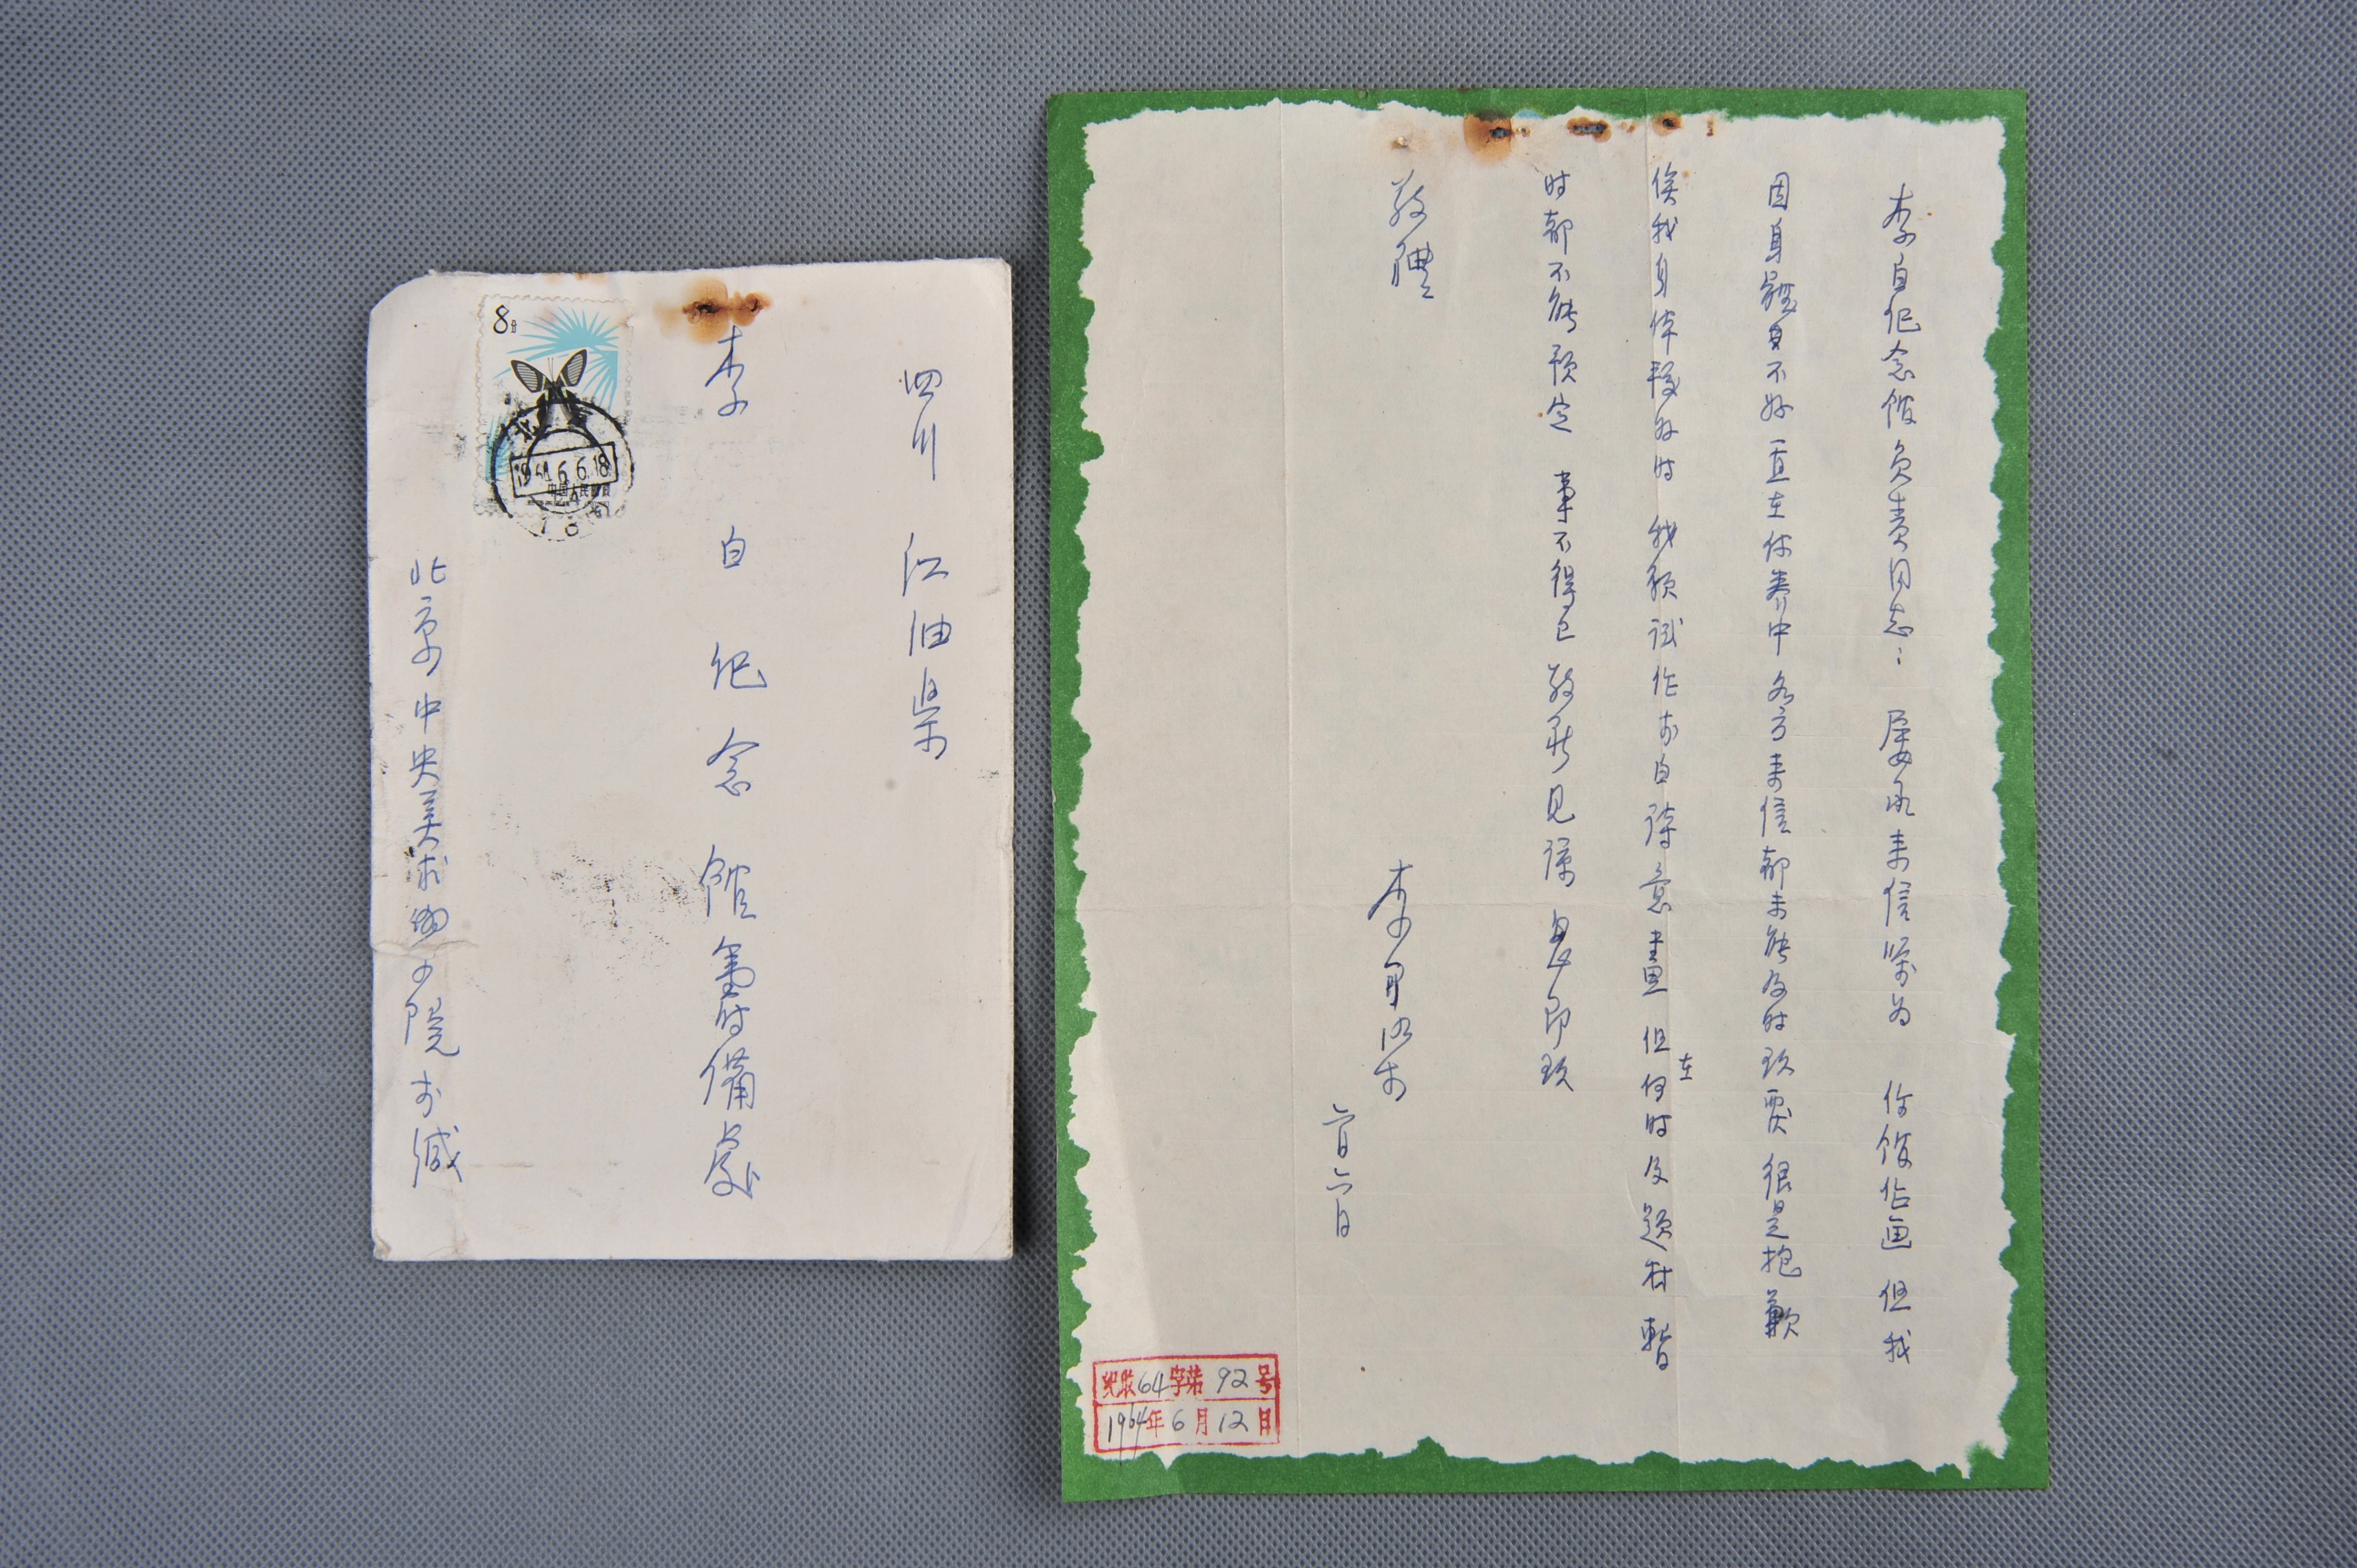 8分
1964.6.6.18
四川 江油县
李白纪念馆筹备处
北京中央美术学院李缄
李白纪念馆负责同志： 屡承来信嘱为 你馆作画 但我
因身體不好 一直在休养中 各方来信都未能及时致覆 很是抱歉
俟我身体稍好时 我预试作李白诗意畫 但在何时及题材 暂
时都不能预定 事不得已 敬祈见谅 匆匆即致
敬禮
李可染
六月六日
纪收64字第92号
1964年6月12日